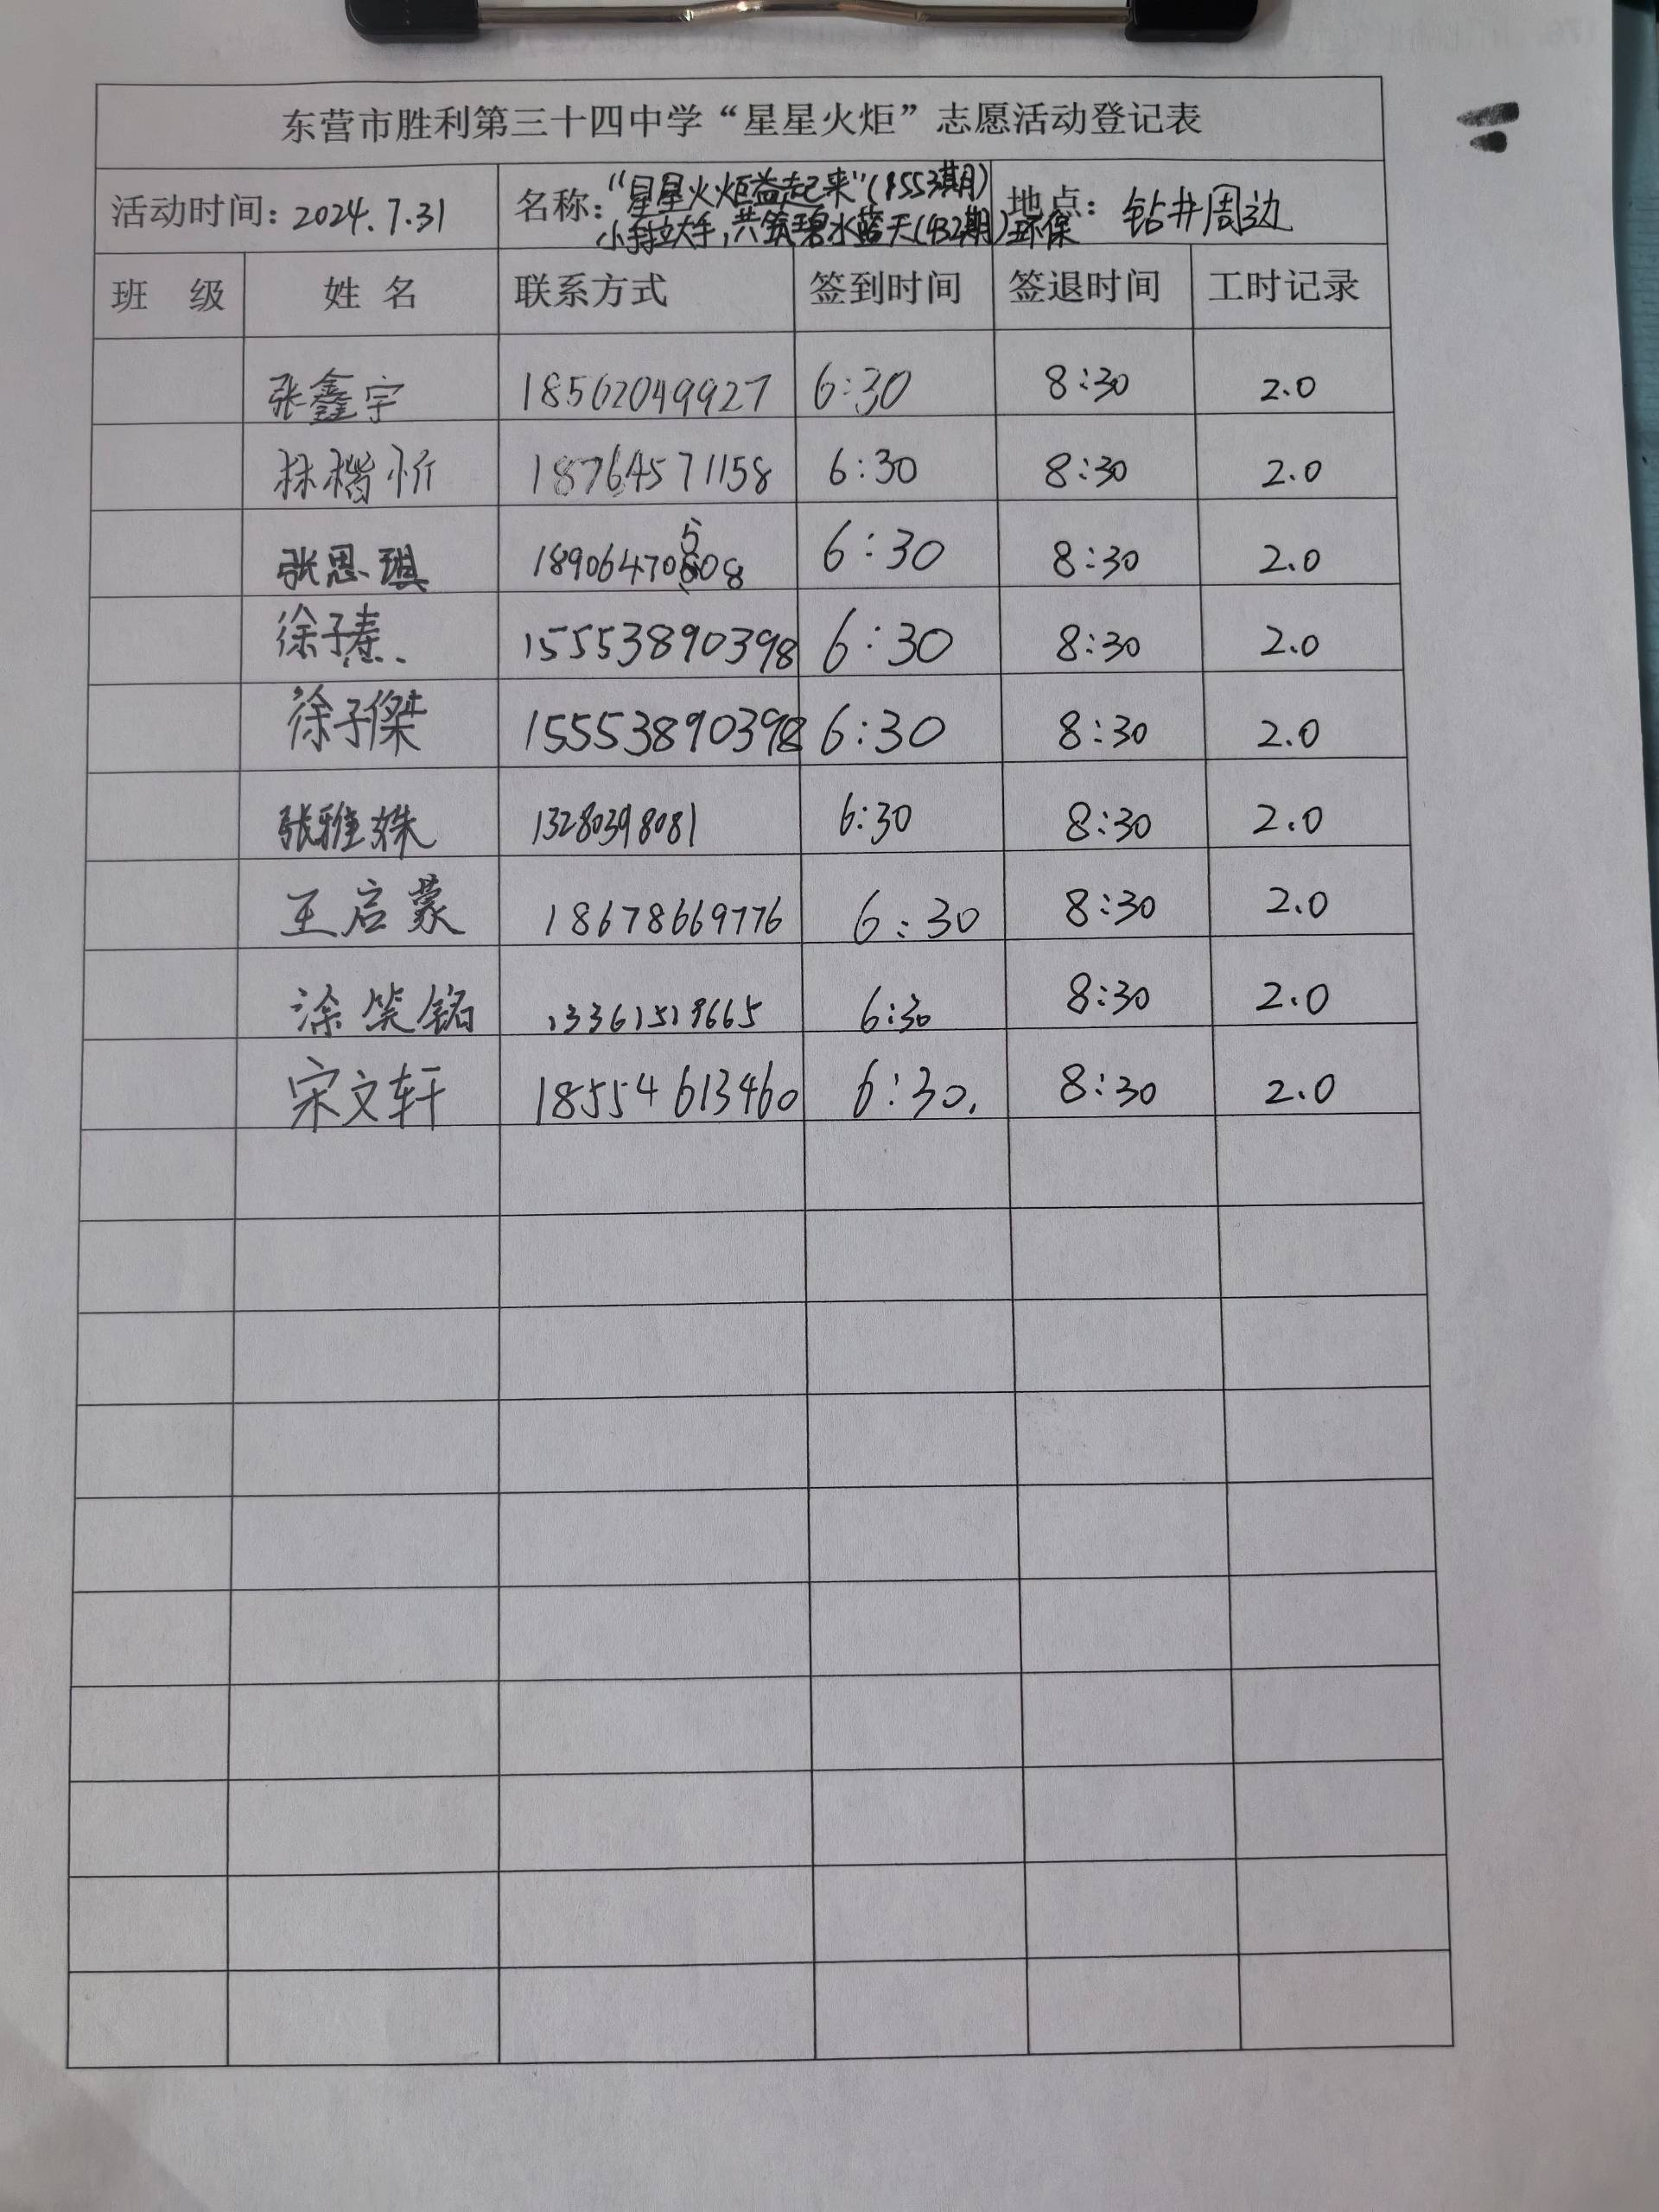 东营市胜利第三十四中学“星星火炬”志愿活动登记表
活动时间：2024.7.31 名称：“星星火炬益起来”(1553期) 地点：钻井周边
小手拉大手，共筑碧水蓝天(432期)环保
班 级 姓 名 联系方式 签到时间 签退时间 工时记录
张鑫宇 18562049927 6:30 8:30 2.0
林楷忻 18764571158 6:30 8:30 2.0
张思琪 18906470508 6:30 8:30 2.0
徐子焘 15553890398 6:30 8:30 2.0
徐子傑 15553890398 6:30 8:30 2.0
张雅姝 13280398081 6:30 8:30 2.0
王启蒙 18678669776 6:30 8:30 2.0
涂笑铭 6:30 8:30 2.0
宋文轩 18554613460 6:30. 8:30 2.0